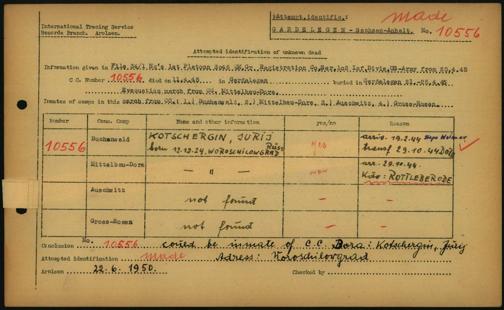 International Tracing Service
Records Branch. Arolsen.
Attempt.identific.: made
GARDELEGEN - Sachsen-Anhalt. No. 10556
Attempted identification of unknown dead
Information given in 1st Platoon from 20.4.45
C.C. Number 10556 died on in Gardelegen buried in Gardelegen
Evacuating march from CC. Mittelbau-Dora.
Inmates of camps in this march from CC.: 1.) Buchenwald, 2.) Mittelbau-Dora, 3.) Auschwitz, 4.) Gross-Rosen.
Number Conc. Camp Name and other information yes/no Reason
10556 Buchenwald KOTSCHERGIN, JURIJ yes
born 12.12.24, WOROSCHILOWGRAD Russ
transf 29.10.44 Dora
Mittelbau-Dora — " — arr. 29.10.44
Kdo: ROTTLEBERODE
Auschwitz not found — —
Gross-Rosen not found — —
Conclusion No. 10556 could be inmate of C.C. Dora: Kotschergin, Jurij
Attempted identification made Adress: Woroschilovgrad
Arolsen 22.6.1950. Checked by